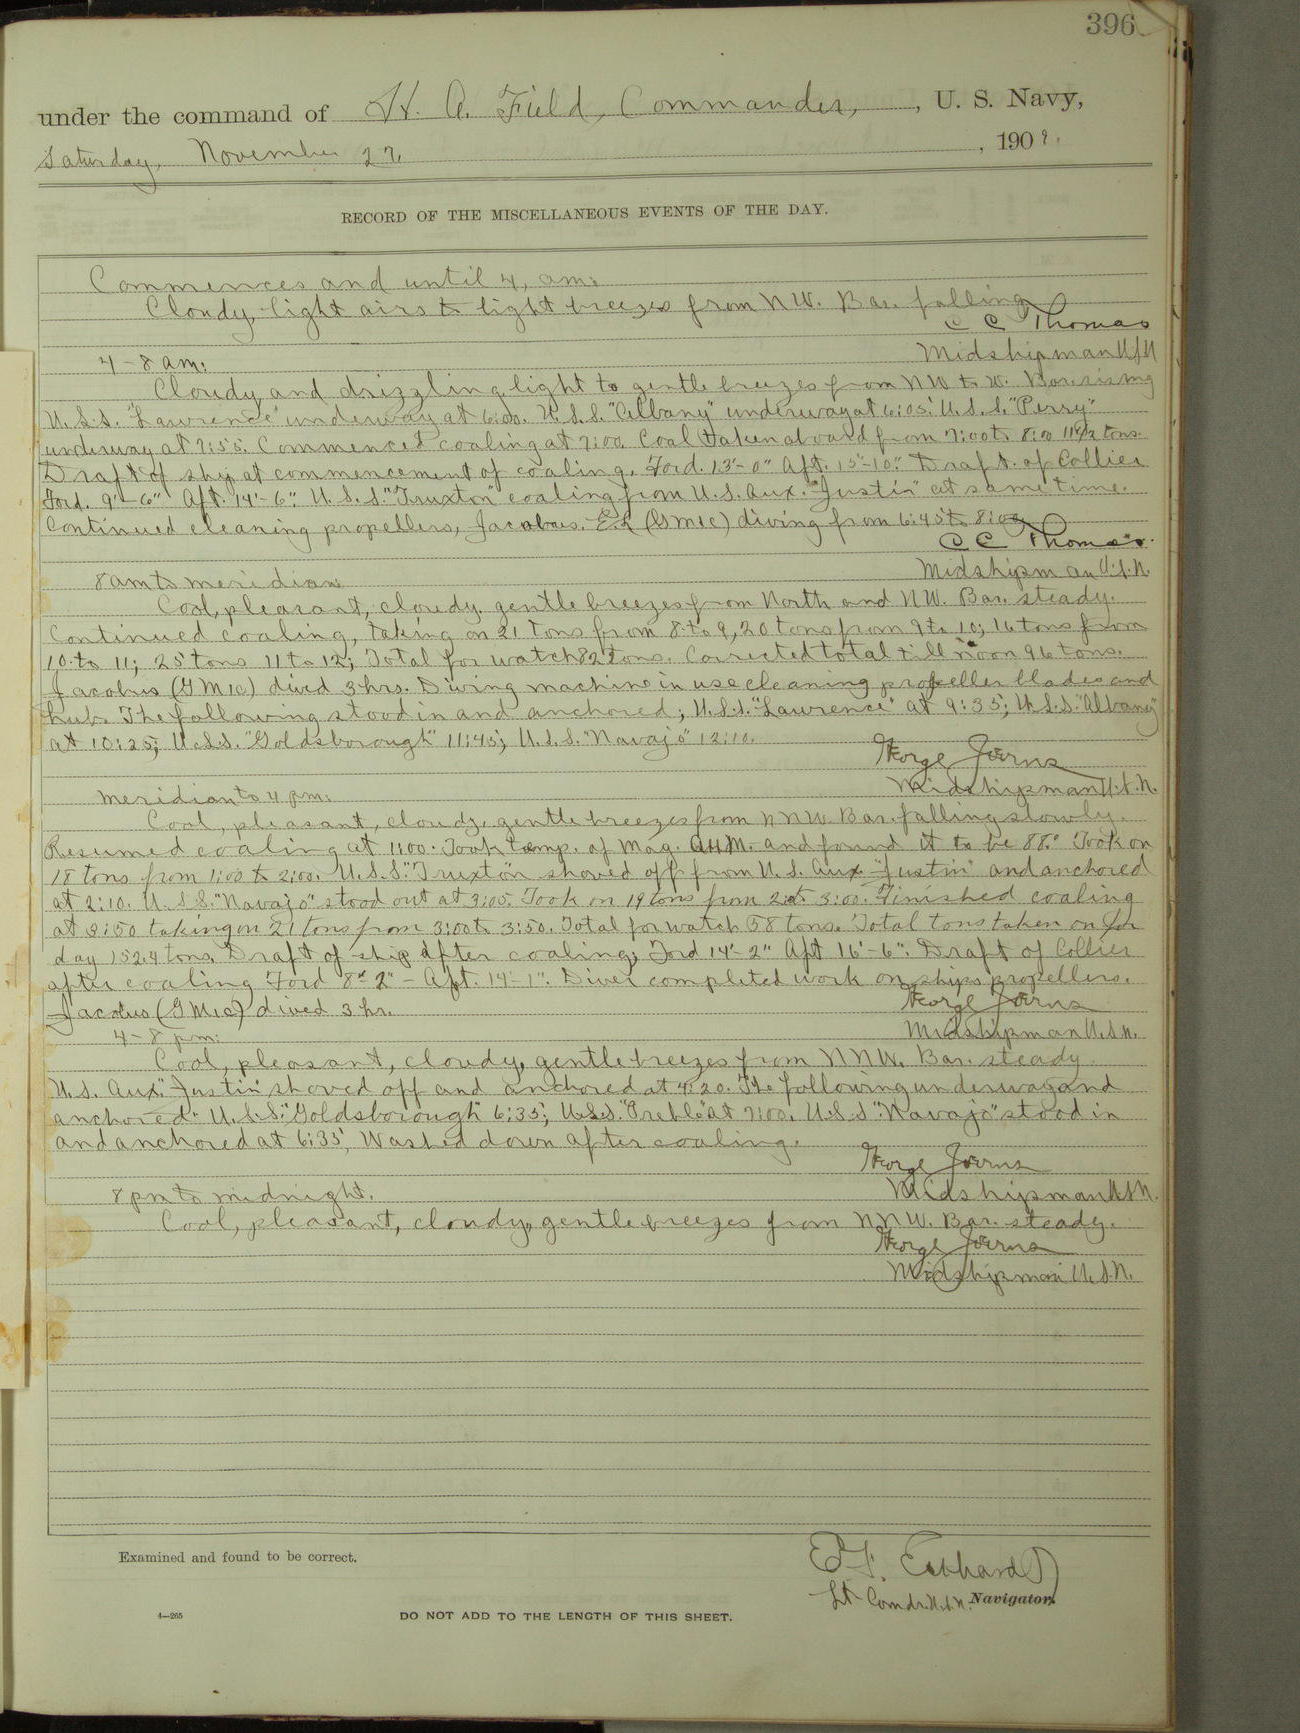 396
under the command of H. A. Field, Commander, , U. S. Navy,
Saturday, November 27. , 1909.
RECORD OF THE MISCELLANEOUS EVENTS OF THE DAY.
Commences and until 4, am:
Cloudy, light airs to light breezes from NW. Bar. falling
C C Thomas
Midshipman USN
4-8 am:
Cloudy and drizzling light to gentle breezes from NW to W. Bar. rising
U.S.S. "Lawrence" underway at 6:00. U.S.S. "Albany" underway at 6:05. U.S.S. "Perry"
underway at 7:55. Commenced coaling at 7:00. Coal taken aboard from 7:00 to 8:00 tons.
Draft of ship at commencement of coaling. Ford. 13'-0" Aft. 15'-10". Draft. of Collier
Ford. 9'-6" Aft. 14'-6". U.S.S. "Truxton" coaling from U.S. Aux. "Justin" at same time.
Continued cleaning propellers, Jacobus. (GM1C) diving from 6:45 to 8:00
C C Thomas.
Midshipman U.S.N.
8 am to meridian
Cool, pleasant, cloudy. gentle breezes from North and NW. Bar. steady.
Continued coaling, taking on 21 tons from 8 to 9, 20 tons from 9 to 10; 16 tons from
10 to 11; 25 tons 11 to 12; Total for watch 82 tons. Corrected total till noon 96 tons.
Jacobus (GM1C) dived 3 hrs. Diving machine in use cleaning propeller blades and
hub. The following stood in and anchored; U.S.S. "Lawrence" at 9:35; U.S.S. "Albany"
at 10:25; U.S.S. "Goldsborough" 11:45; U.S.S. "Navajo" 12:10.
George Joerns
Midshipman U.S.N.
meridian to 4 pm:
Cool, pleasant, cloudy, gentle breezes from NNW. Bar. falling slowly.
Resumed coaling at 1:00. Took temp. of Mag. and found it to be 88.° Took on
18 tons from 1:00 to 2:00. U.S.S. "Truxton" shoved off from U.S. Aux "Justin" and anchored
at 2:10. U.S.S. "Navajo" stood out at 3:05. Took on 19 tons from 2: to 3:00. Finished coaling
at 3:50 taking on 21 tons from 3:00 to 3:50. Total for watch 58 tons. Total tons taken on for
day 152.4 tons. Draft of ship after coaling, Ford 14'-2" Aft 16'-6". Draft of Collier
after coaling Ford 8'-2" - Aft. 14'-1". Diver completed work on ships propellers.
Jacobus (GM1C) dived 3 hr.
George Joerns
Midshipman U.S.N.
4-8 pm:
Cool, pleasant, cloudy, gentle breezes from NNW. Bar. steady
U.S. Aux. "Justin" shoved off and anchored at 4:20. The following underway and
anchored: U.S.S. "Goldsborough" 6:35; U.S.S. "Preble" at 7:00. U.S.S. "Navajo" stood in
and anchored at 6:35, Washed down after coaling.
George Joerns
Midshipman U.S.N.
8 pm to midnight.
Cool, pleasant, cloudy, gentle breezes from NNW. Bar. steady.
George Joerns
Midshipman U.S.N.
Examined and found to be correct.
E. F. Eckhardt
Lt Comdr. U.S.N. Navigator.
4—265
DO NOT ADD TO THE LENGTH OF THIS SHEET.